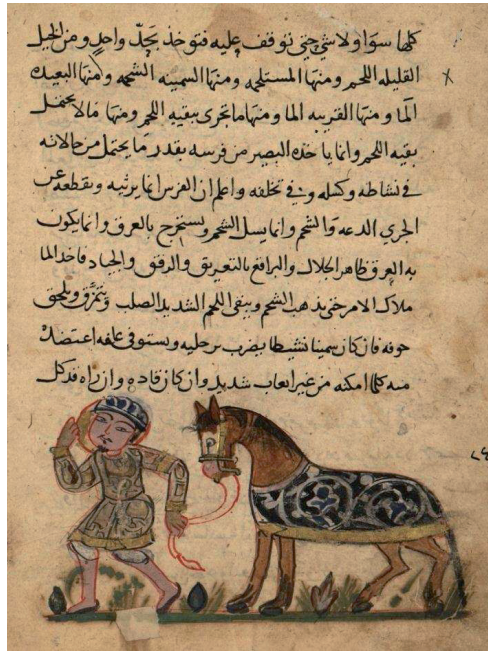 كلها سوا ولا شي حتى توقف عليه فتوخذ بحد واحد ومن الخيل
القليله اللحم ومنها المستلحمه ومنها السمينه الشحمه ومنها البعيده
الما ومنها القريبه الما ومنها ما تجرى ببقيه اللحم ومنها مالا يحتمل
بقيه اللحم وانما ياخذه البصير من فرسه بقدر ما يحتمل من حالاته
فى نشاطه وكسله وفى تخلفه واعلم ان الفرس انما يرثيه ويقطعه عن
الجري الدعه والشحم وانما يسل الشحم ويستخرج بالعرق وانما يكون
به العرق ظاهر الجلال والبراقع بالتعريق والرفق والجياد فاخد الما
ملاك الامر حتى يذهب الشحم ويبقى اللحم الشديد الصلب ويلحق
جوفه فان كان سمينا نشيطا يضرب برجليه ويستوفى علفه
منه كلما امكنه من غير اتعاب شديد وان كان قاده وان راه قد كل